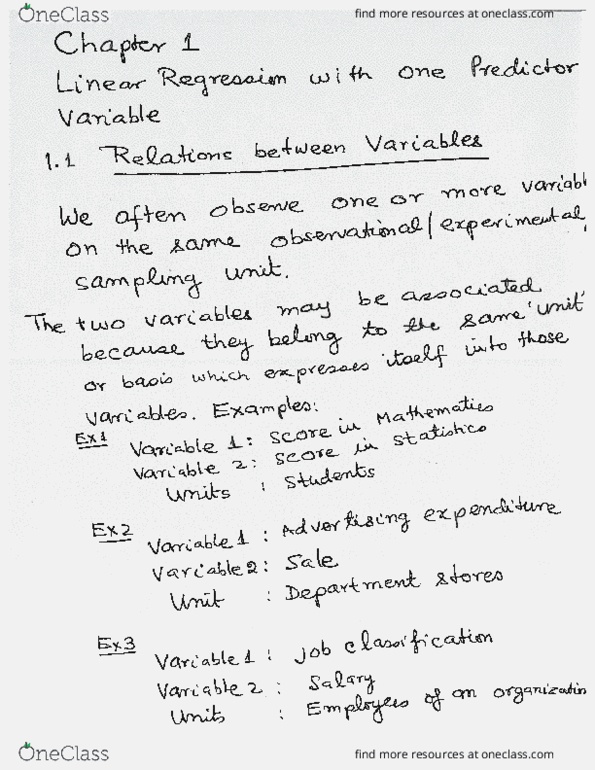 OneClass find more resources at oneclass.com
Chapter 1
Linear Regression with one Predictor
Variable
1.1 Relations between Variables
We aften observe one or more variabl
on the same observational/experimental,
sampling unit.
The two variables may be associated
because they belong to the same 'unit'
or basis which expresses itself into those
variables. Examples:
Ex1 Variable 1: Score in Mathematics
Variable 2: Score in Statistics
Units : Students
Ex2 Variable 1 : Advertising expenditure
Variable 2: Sale
Unit : Department stores
Ex3 Variable 1 : job classification
Variable 2 : Salary
Units : Employees of an organization
OneClass find more resources at oneclass.com